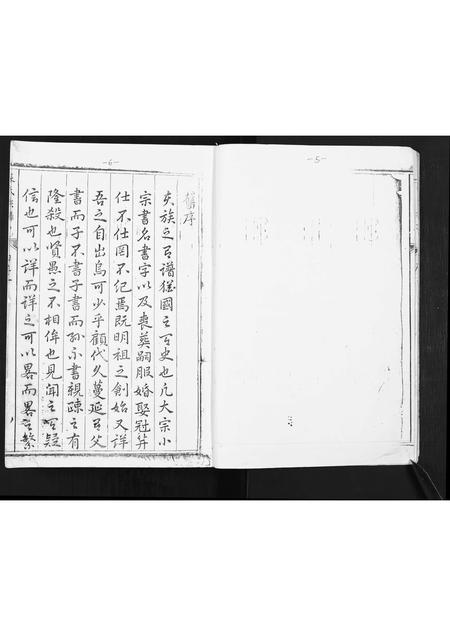 -5-
-6-
舊序
夫族之有譜猶國之有史也凡大宗小
宗書名書字以及喪葬嗣服婚娶冠笄
仕不仕罔不纪焉既明祖之創始又詳
吾之自出烏可少乎顧代久蔓延有父
書而子不書子書而孙不書親疎之有
隆殺也賢愚之不相侔也見聞之有疑
信也可以詳而詳之可以畧而畧之繁